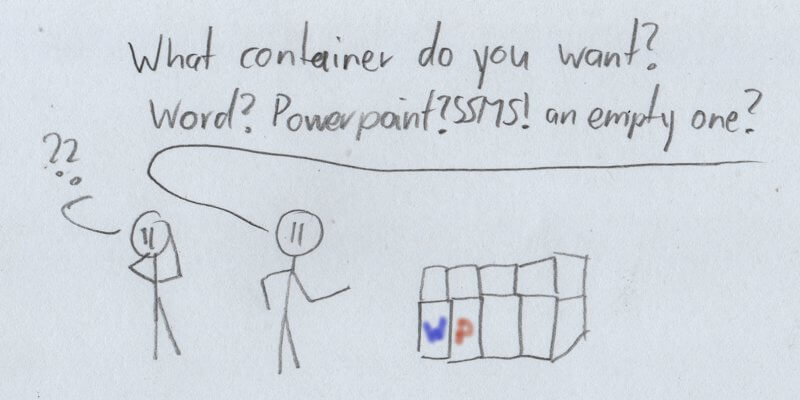 What container do you want?
Word? Powerpaint? SSMS! an empty one?
??
W P